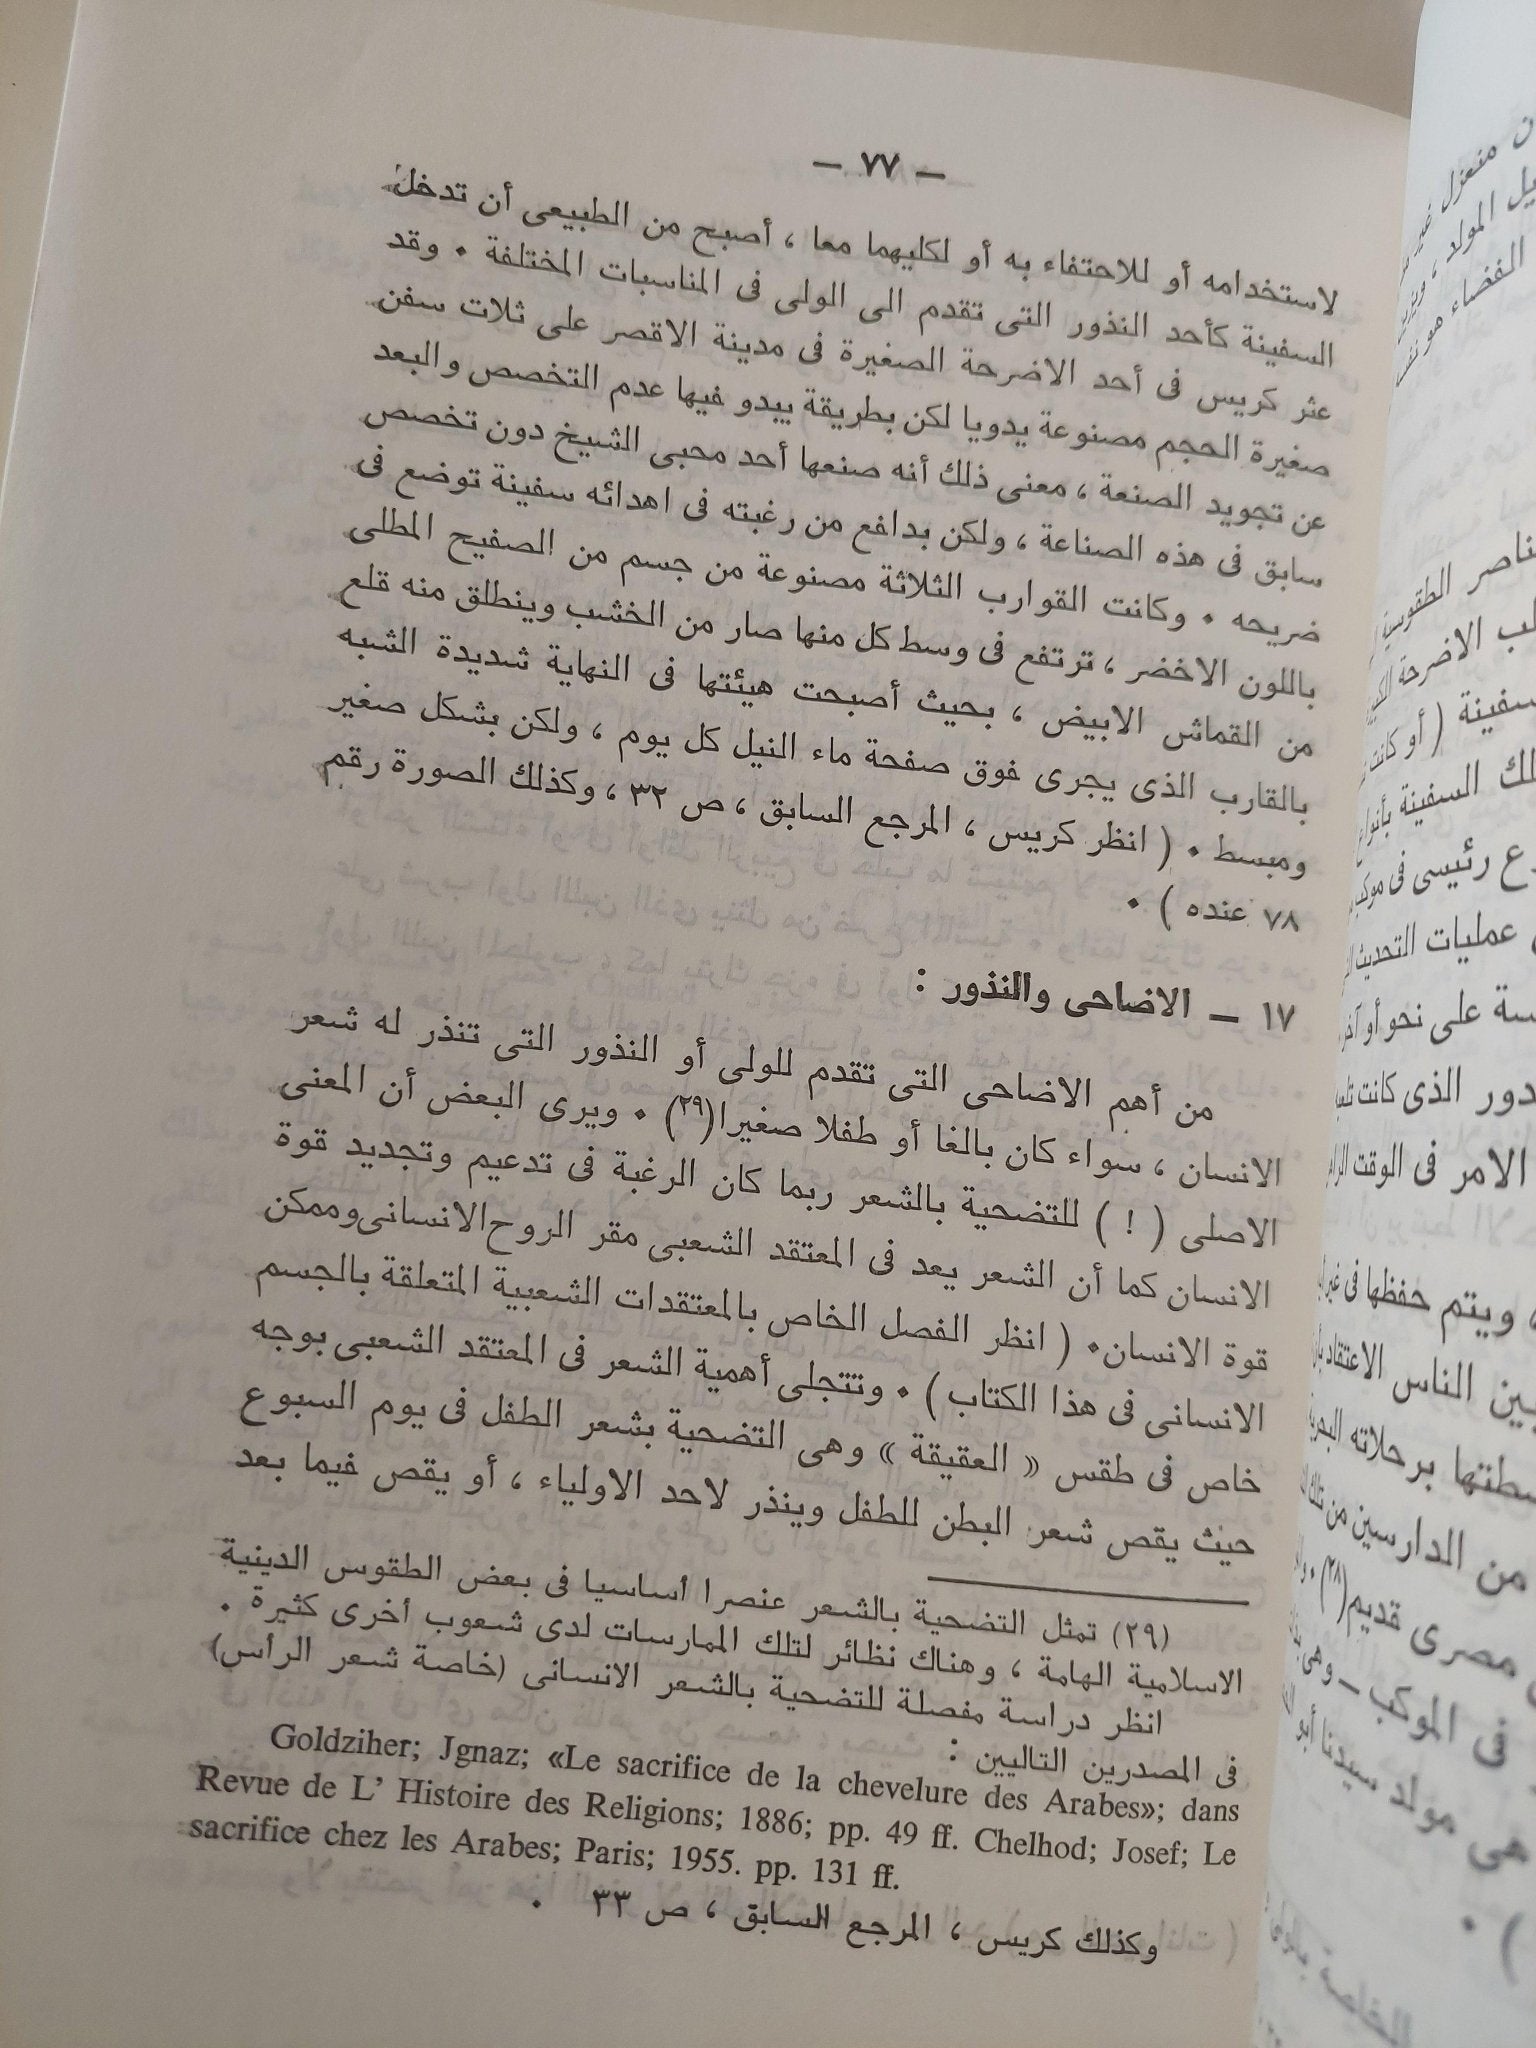 — ٧٧ —
لاستخدامه أو للاحتفاء به أو لكليهما معا ، أصبح من الطبيعى أن تدخل
السفينة كأحد النذور التى تقدم الى الولى فى المناسبات المختلفة ٠ وقد
عثر كريس فى أحد الاضرحة الصغيرة فى مدينة الاقصر على ثلاث سفن
صغيرة الحجم مصنوعة يدويا لكن بطريقة يبدو فيها عدم التخصص والبعد
عن تجويد الصنعة ، معنى ذلك أنه صنعها أحد محبى الشيخ دون تخصص
سابق فى هذه الصناعة ، ولكن بدافع من رغبته فى اهدائه سفينة توضع فى
ضريحه ٠ وكانت القوارب الثلاثة مصنوعة من جسم من الصفيح المطلى
باللون الاخضر ، ترتفع فى وسط كل منها صار من الخشب وينطلق منه قلع
من القماش الابيض ، بحيث أصبحت هيئتها فى النهاية شديدة الشبه
بالقارب الذى يجرى فوق صفحة ماء النيل كل يوم ، ولكن بشكل صغير
ومبسط ٠ ( انظر كريس ، المرجع السابق ، ص ٣٢ ، وكذلك الصورة رقم
٧٨ عنده ) ٠
١٧ — الاضاحى والنذور :
من أهم الاضاحى التى تقدم للولى أو النذور التى تنذر له شعر
الانسان ، سواء كان بالغا أو طفلا صغيرا(٢٩) ٠ ويرى البعض أن المعنى
الاصلى ( ! ) للتضحية بالشعر ربما كان الرغبة فى تدعيم وتجديد قوة
الانسان كما أن الشعر يعد فى المعتقد الشعبى مقر الروح الانسانى وممكن
قوة الانسان٠ ( انظر الفصل الخاص بالمعتقدات الشعبية المتعلقة بالجسم
الانسانى فى هذا الكتاب ) ٠ وتتجلى أهمية الشعر فى المعتقد الشعبى بوجه
خاص فى طقس « العقيقة » وهى التضحية بشعر الطفل فى يوم السبوع
حيث يقص شعر البطن للطفل وينذر لاحد الاولياء ، أو يقص فيما بعد
(٢٩) تمثل التضحية بالشعر عنصرا أساسيا فى بعض الطقوس الدينية
الاسلامية الهامة ، وهناك نظائر لتلك الممارسات لدى شعوب أخرى كثيرة ٠
انظر دراسة مفصلة للتضحية بالشعر الانسانى (خاصة شعر الرأس)
فى المصدرين التاليين :
Goldziher; Jgnaz; «Le sacrifice de la chevelure des Arabes»; dans
Revue de L' Histoire des Religions; 1886; pp. 49 ff. Chelhod; Josef; Le
sacrifice chez les Arabes; Paris; 1955. pp. 131 ff.
وكذلك كريس ، المرجع السابق ، ص ٣٣ ٠
منعزل
المولد ،
الفضاء
الطقوسية
الاضرحة
سفينة ( أو كانت
السفينة بأنواع
رئيسى فى
عمليات التحديث
على نحو أو آخر
الذى كانت
الامر فى الوقت
، ويتم حفظها فى
الناس الاعتقاد
برحلاته
من الدارسين من تلك
مصرى قديم(٢٨)٠
فى الموكب — وهى
هى مولد سيدنا أبو
) ٠